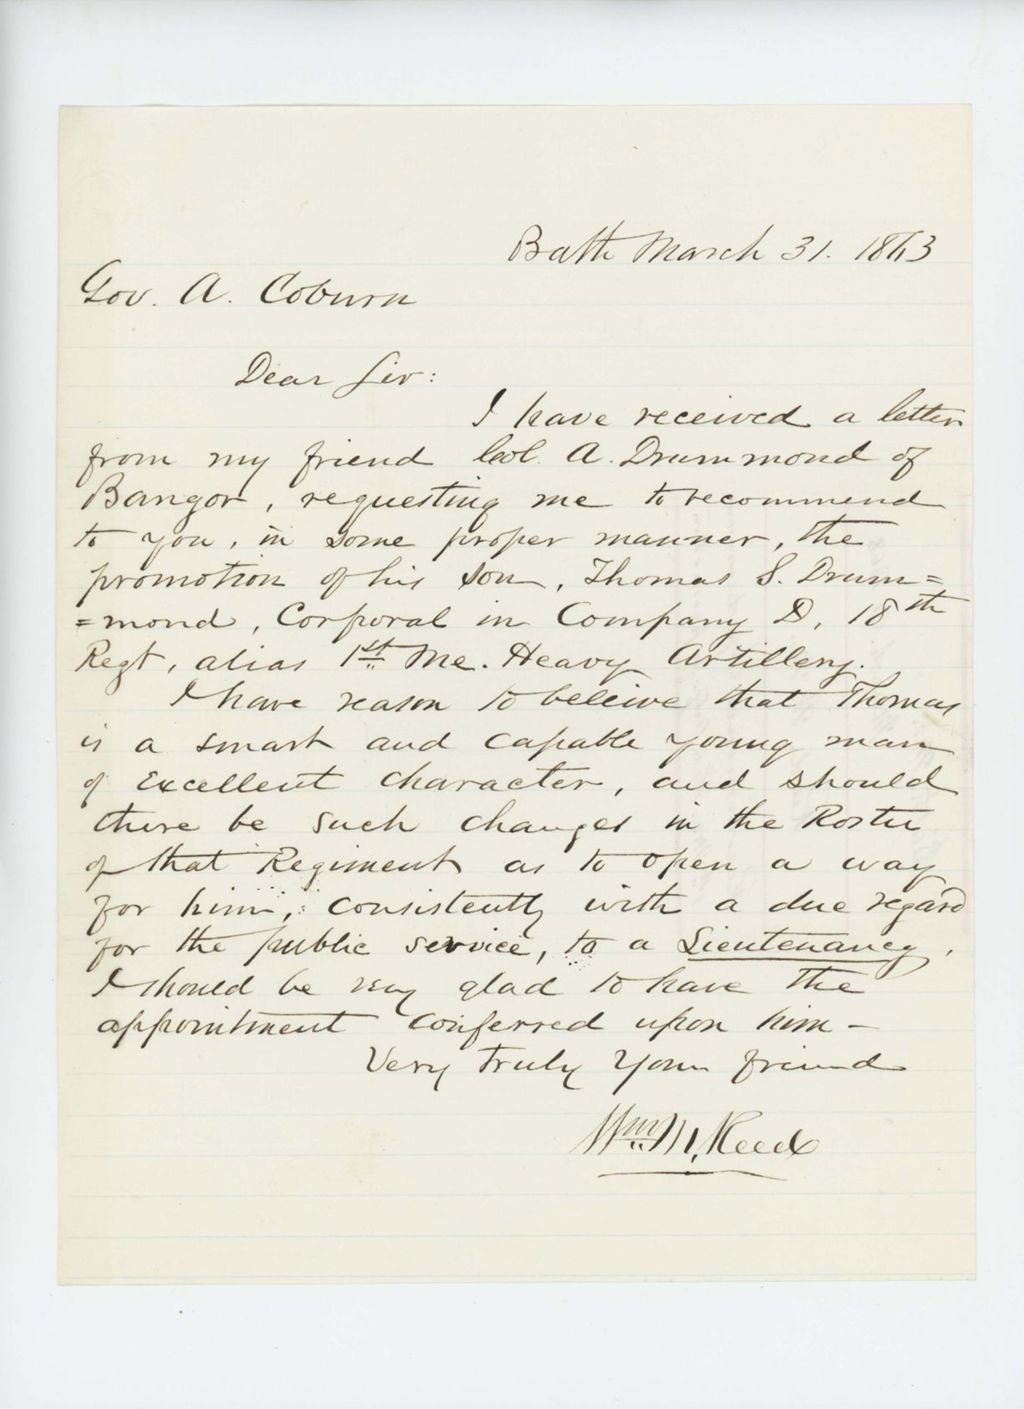 Bath March 31. 1863
Gov. A. Coburn
Dear Sir:
I have received a letter
from my friend Col. A. Drummond of
Bangor, requesting me to recommend
to you, in some proper manner, the
promotion of his son, Thomas S. Drum=
=mond, Corporal in Company D, 18th
Regt, alias 1st Me. Heavy Artillery.
I have reason to beleive that Thomas
is a smart and capable young man
of excellent character, and should
there be such changes in the Roster
of that Regiment as to open a way
for him, consistently with a due regard
for the public service, to a Lieutenancy,
I should be very glad to have the
appointment conferred upon him –
Very truly Your friend
Wm. M. Reed